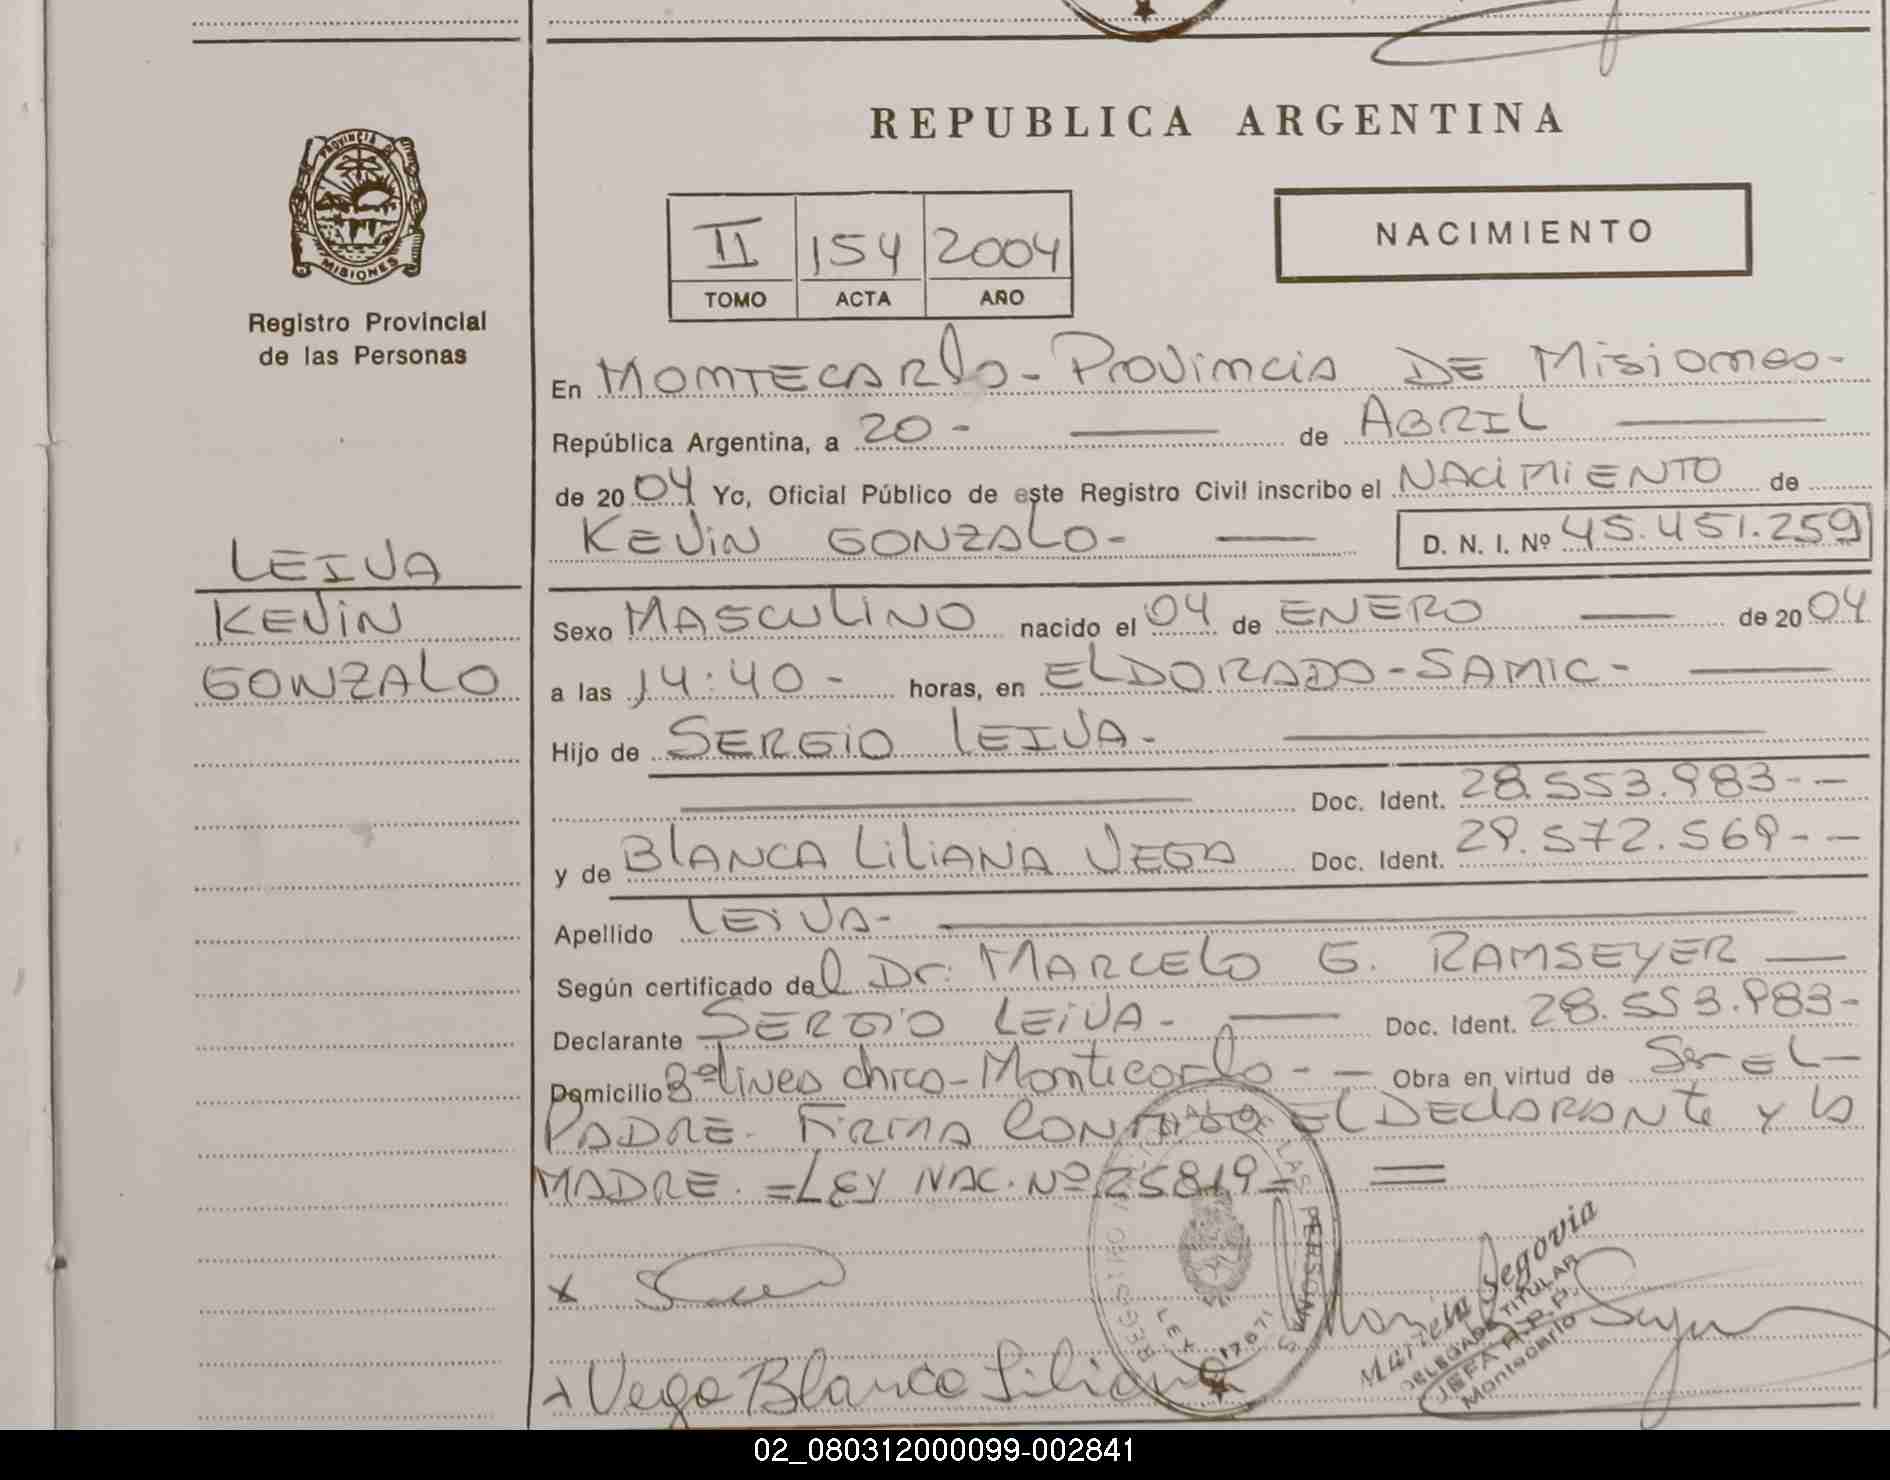 REPUBLICA ARGENTINA
PROVINCIA DE
MISIONES
Registro Provincial
de las Personas
LEIVA
KEVIN
GONZALO
II 154 2004
TOMO ACTA AÑO
NACIMIENTO
En MONTECARLO - Provincia DE Misiones -
República Argentina, a 20 - de ABRIL
de 2004 Yo, Oficial Público de este Registro Civil inscribo el NACIMIENTO de
KEVIN GONZALO - D. N. I. Nº 45.451.259
Sexo MASCULINO nacido el 04 de ENERO de 2004
a las 14:40 - horas, en ELDORADO - SAMIC -
Hijo de SERGIO LEIVA -
Doc. Ident. 28.553.983 - -
y de BLANCA LILIANA VEGA Doc. Ident. 29.572.569 - -
Apellido LEIVA -
Según certificado del Dr. MARCELO G. RAMSEYER
Declarante SERGIO LEIVA - Doc. Ident. 28.553.983 -
Domicilio 3ª linea chica - Montecarlo - - Obra en virtud de Ser EL -
PADRE. FIRMA CONMIGO EL DECLARANTE y la
MADRE. = LEY NAC. Nº 25819 =
x
x Vega Blanca Liliana
REGISTRO LAS PERSONAS
LEY 17671
Mariela Segovia
DELEGADA TITULAR
JEFA R.P.P.
Montecarlo
02_080312000099-002841